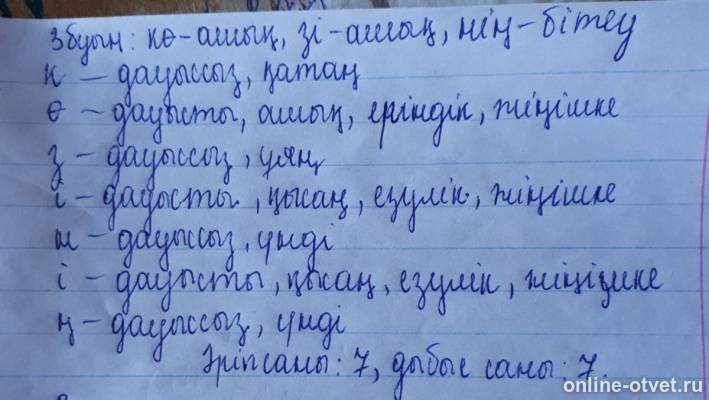 3 буын: кө-ашық, зі-ашық, нің-бітеу
к – дауыссыз, қатаң
ө – дауысты, ашық, еріндік, жіңішке
з – дауыссыз, ұяң
і – дауысты, қысаң, езулік, жіңішке
н – дауыссыз, үнді
і – дауысты, қысаң, езулік, жіңішке
ң – дауыссыз, үнді
Әріп саны: 7, дыбыс саны: 7.
online-otvet.ru